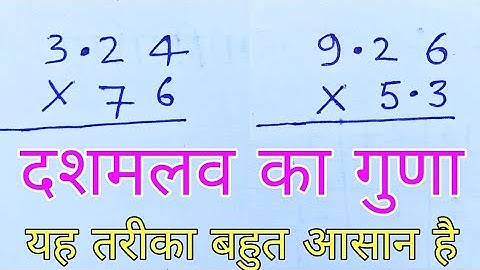 3.24 9.26
X 76 X 5.3
दशमलव का गुणा
यह तरीका बहुत आसान है